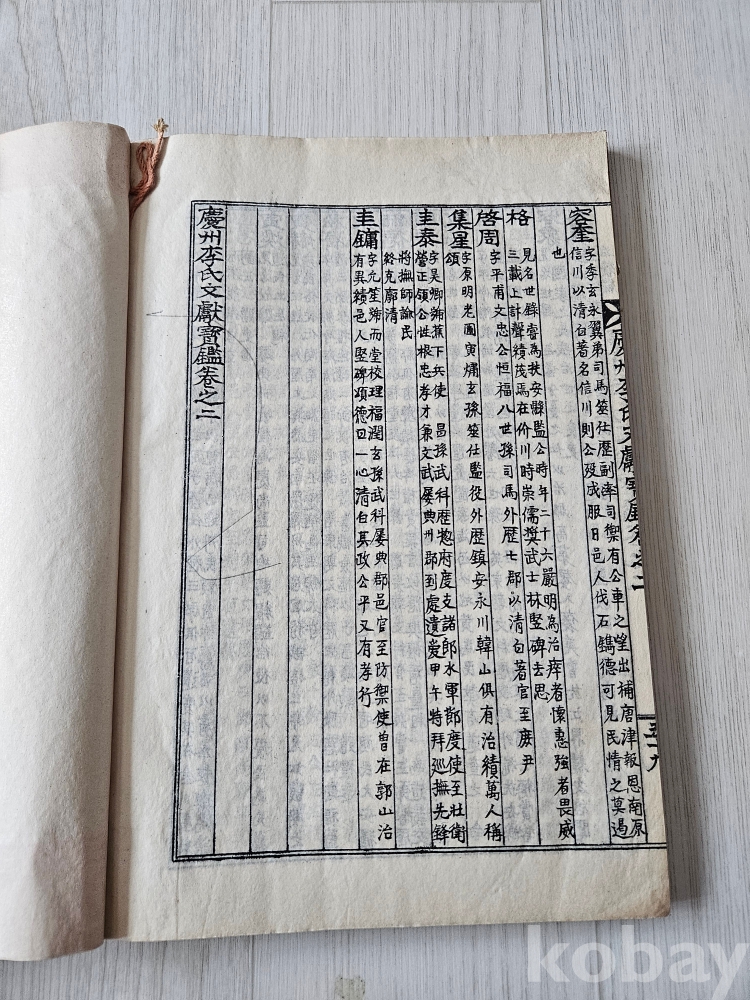 容奎
字季玄永翼弟司馬筮仕歷副率司禦有公車之望出補唐津報恩南原
信川以清白著名信川則公歿成服日邑人伐石鐫德可見民情之莫遏
也
格
見名世錄睿為扶安縣監公時年二十六嚴明為治瘁者懷惠強者畏威
三載上計聲績茂焉在价川時崇儒奬武士林竪碑去思
啓周
字平甫文忠公恒福八世孫司馬外歷七郡以清白著官至庶尹
集星
字原明老圃寅熽玄孫筮仕監役外歷鎮安永川韓山俱有治績萬人稱
頌
圭泰
字吴卿號蕉下兵使 昌孫武科歷惣府度支諸郎水軍節度使至壯衛
營正領公性根忠孝才兼文武屢典州郡到處遺愛甲午特拜巡撫先鋒
將撫師諭民
終克廓清
圭鏞
字允笙號而堂校理福潤玄孫武科屢典郡邑官至防禦使曽在郭山治
有異績邑人竪碑頌德曰一心清白其政公平又有孝行
慶州李氏文獻寶鑑卷之二
慶州李氏文獻寶鑑卷之二
五十九
kobay